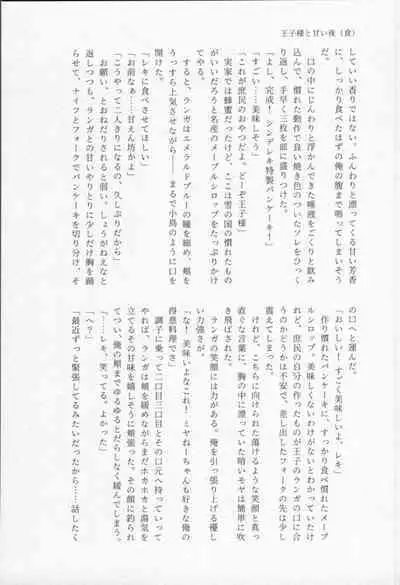 王子様と甘い夜（食）
している香りではない、ふんわりと漂ってくる甘い芳香
に、しっかり食べたはずの俺の腹まで鳴ってしまいそう
だ。
口の中にじんわりと浮かんできた唾液をごくりと飲み
込んで、慣れた動作で良い焼き色のついたソレをひっく
り返し、手早く三枚を皿に盛りつけた。
「よし、完成！　シンデレキ特製パンケーキ！」
「すごい……美味しそう」
「これが庶民のおやつだよ。どーぞ王子様」
実家では蜂蜜だったけど、ここは雪の国の慣れたもの
がいいだろうと名産のメープルシロップをたっぷりかけ
てやる。
すると、ランガはエメラルドブルーの瞳を細め、頬を
うっすら上気させながら――まるで小鳥のように口を
開けた。
「レキに食べさせてほしい」
「お前なぁ……甘えん坊かよ」
「こうやって二人きりになるの、久しぶりだから」
お願い、とおねだりされると弱い。しょうがねえなと
返しつつも、ランガとの甘いやりとりに少しだけ胸を踊
らせて、ナイフとフォークでパンケーキを切り分け、そ
の口へと運んだ。
「おいしい！　すごく美味しいよ、レキ」
作り慣れたパンケーキに、すっかり食べ慣れたメープ
ルシロップ。美味しくないわけがないとわかっていたけ
れど、庶民の自分の作ったものが王子のランガの口に合
うのかどうかは不安で、差し出したフォークの先は少し
震えてしまった。
けれど、こちらに向けられた蕩けるような笑顔と真っ
直ぐな言葉に、胸の中に漂っていた暗いモヤは簡単に吹
き飛ばされた。
ランガの笑顔には力がある。俺を引っ張り上げる優し
い力強さが。
「な！　美味いよなこれ！　ミヤねーちゃんも好きな俺の
得意料理でさ」
調子に乗って二口目三口目とその口元へ持っていって
やれば、ランガは頬を緩めながらまだホカホカと湯気を
立てるその甘味を嬉しそうに頬張った。その顔に釣られ
てつい、俺の頬までゆるゆるとだらしなく緩んでしまう。
「……レキ、笑ってる。よかった」
「へ？」
「最近ずっと緊張してるみたいだったから……話したく